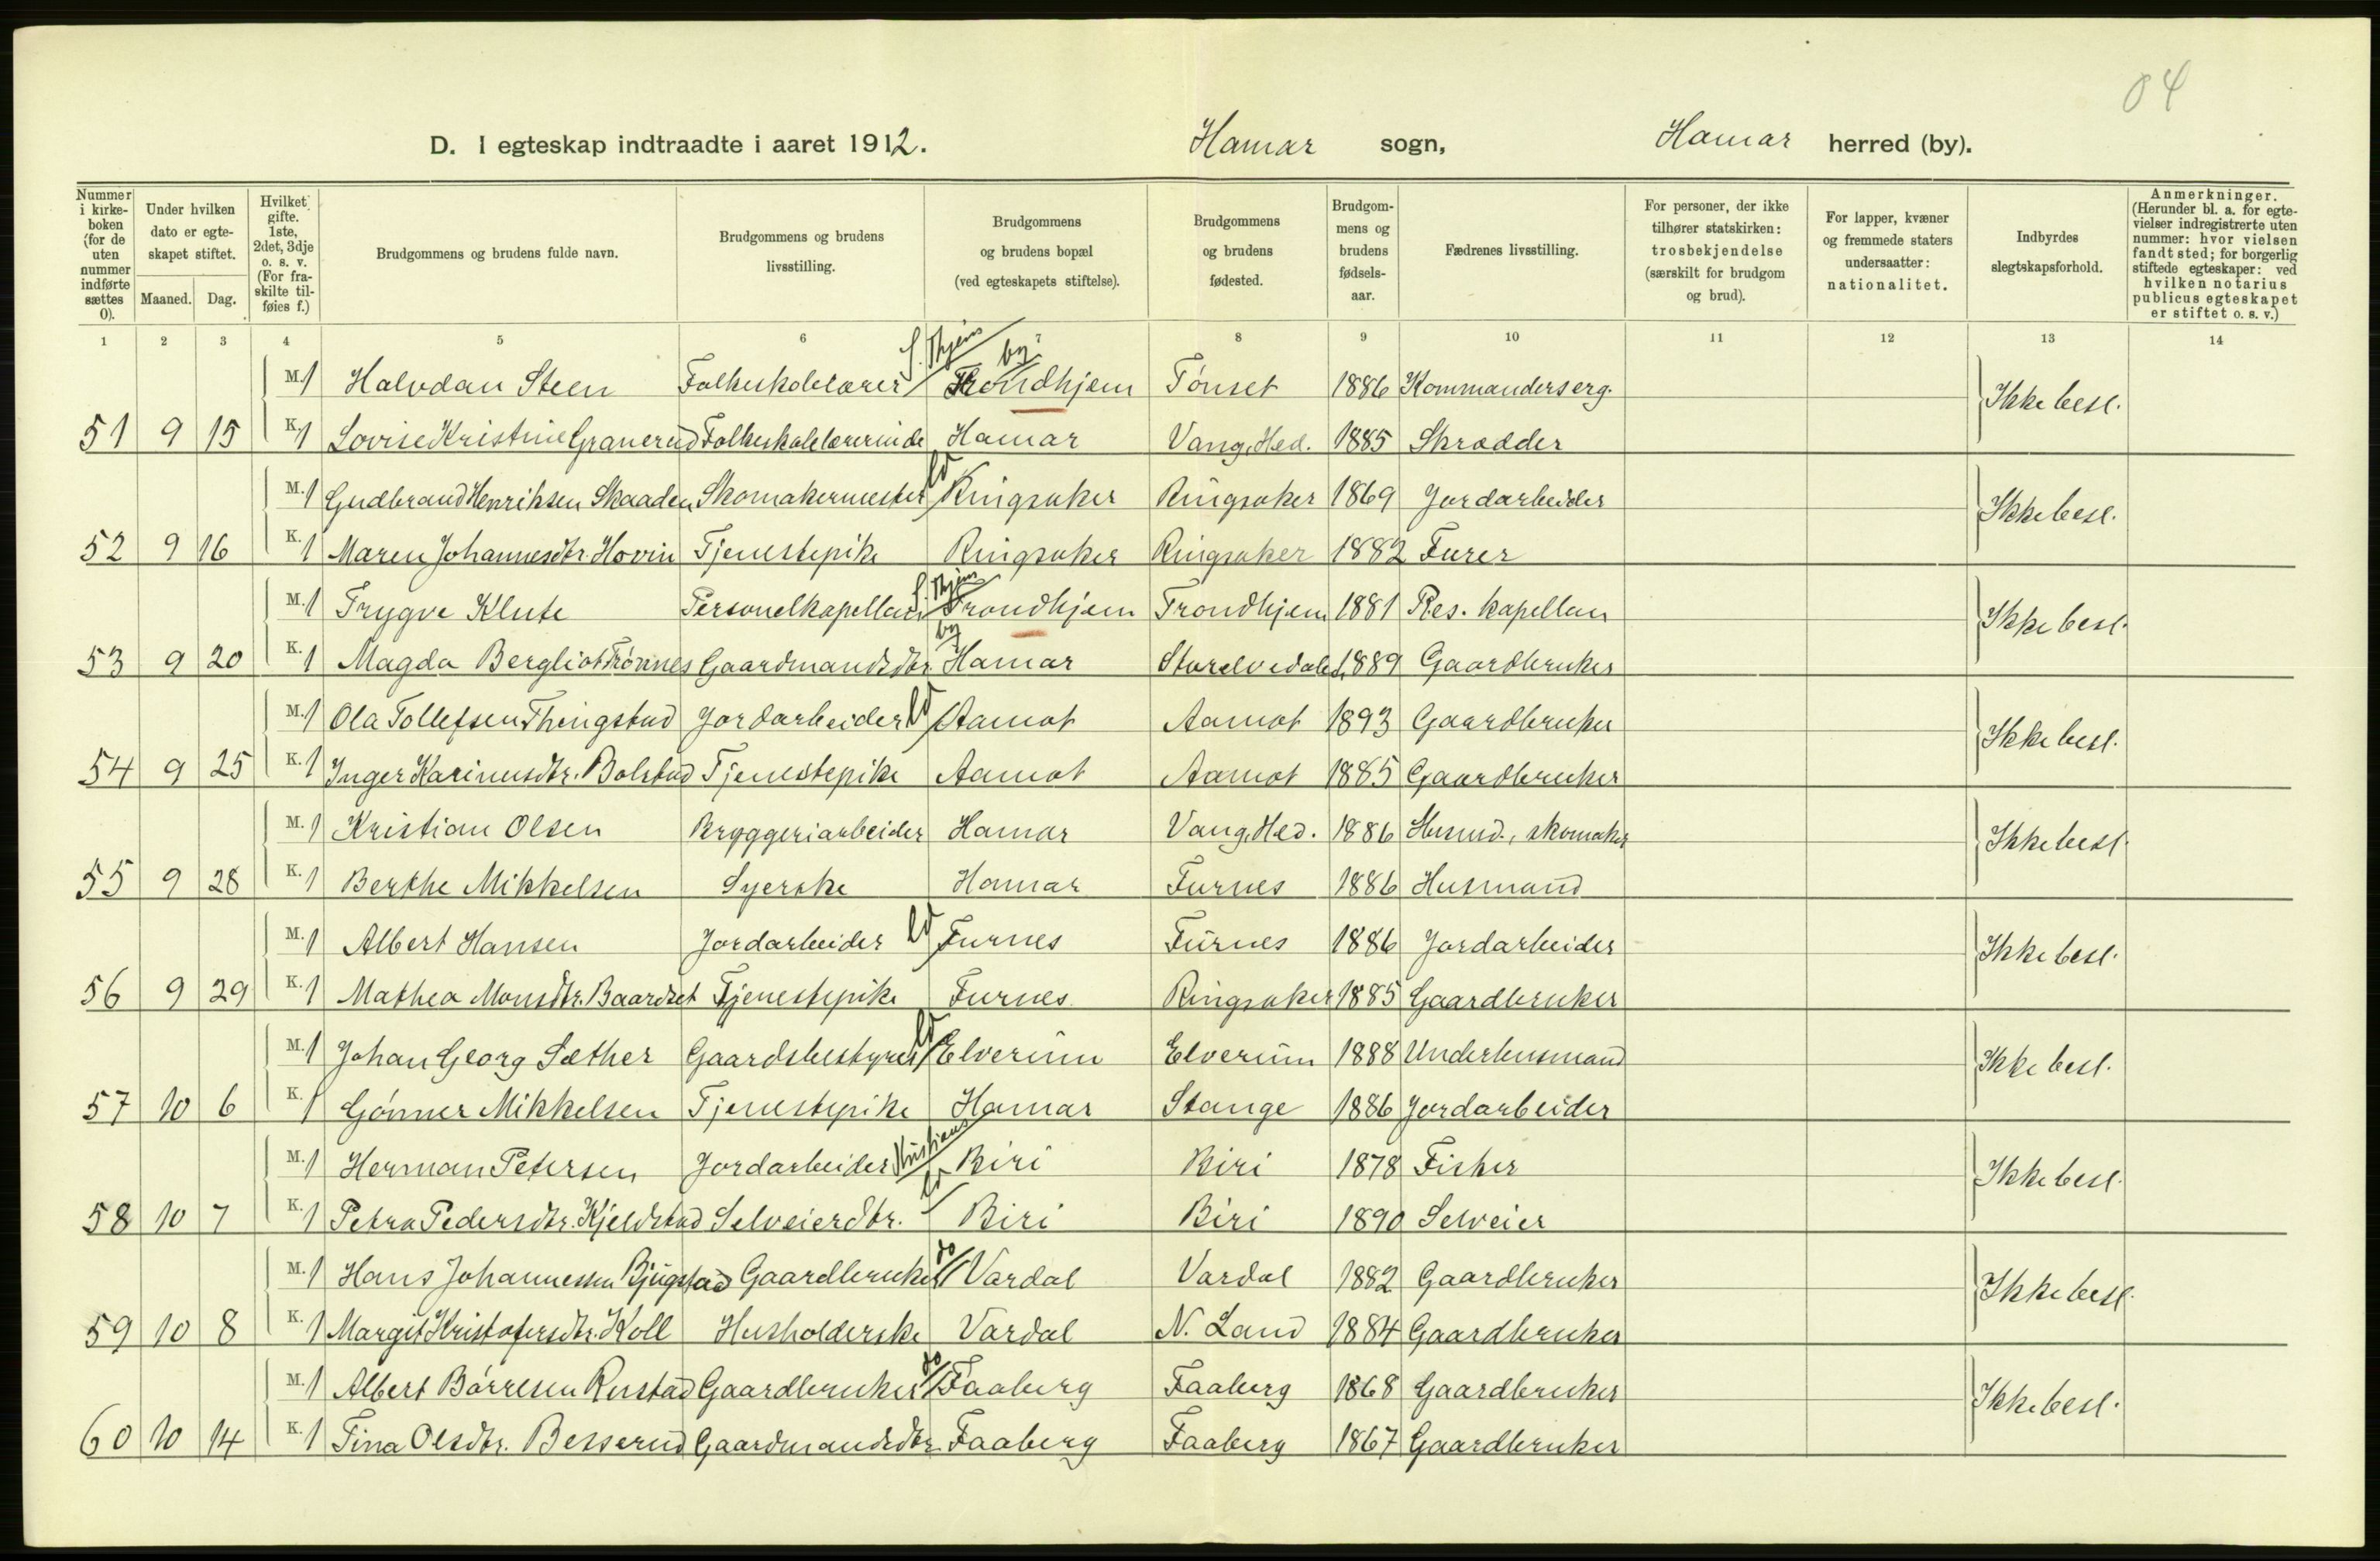 04
D. I egteskap indtraadte i aaret 1912. Hamar sogn, Hamar herred (by).
Nummer i kirke-boken (for de uten nummer indførte sættes 0). Under hvilken dato er egte-skapet stiftet. Maaned. Dag. Hvilket gifte. 1ste, 2det, 3dje o. s. v. (For fra-skilte til-føies f.) Brudgommens og brudens fulde navn. Brudgommens og brudens livsstilling. Brudgommens og brudens bopæl (ved egteskapets stiftelse). Brudgommens og brudens fødested. Brudgom-mens og brudens fødsels-aar. Fædrenes livsstilling. For personer, der ikke tilhører statskirken: trosbekjendelse (særskilt for brudgom og brud). For lapper, kvæner og fremmede staters undersaatter: nationalitet. Indbyrdes slegtskapsforhold. Anmerkninger. (Herunder bl. a. for egte-vielser indregistrerte uten nummer: hvor vielsen fandt sted; for borgerlig stiftede egteskaper: ved hvilken notarius publicus egteskapet er stiftet o. s. v.)
1 2 3 4 5 6 7 8 9 10 11 12 13 14
M. 1 Halvdan Steen Folkeskolelærer S. Thjems by Trondhjem Tönset 1886 Kommanderserg. Ikke besl.
51 9 15 K. 1 Lovise Kristine Granerud Folkeskolelærerinde Hamar Vang, Hed. 1885 Skrædder
M. 1 Gudbrand Henriksen Skaaden Skomakermester Ringsaker Ringsaker 1869 Jordarbeider Ikke besl.
52 9 16 K. 1 Maren Johannesdtr. Hovin Tjenestepike Ringsaker Ringsaker 1882 Furer
M. 1 Trygve Klüte Personelkapellan S. Thjems by Trondhjem Trondhjem 1881 Res. kapellan Ikke besl.
53 9 20 K. 1 Magda Bergliot Trönnes Gaardmandsdtr. Hamar Storelvedalen 1889 Gaardbruker
M. 1 Ola Tollefsen Thingstad Jordarbeider Aamot Aamot 1893 Gaardbruker Ikke besl.
54 9 25 K. 1 Inger Karinusdtr. Bolstad Tjenestepike Aamot Aamot 1885 Gaardbruker
M. 1 Kristian Olsen Bryggeriarbeider Hamar Vang, Hed. 1886 Husmd., skomaker Ikke besl.
55 9 28 K. 1 Berthe Mikkelsen Syerske Hamar Furnes 1886 Husmand
M. 1 Albert Hansen Jordarbeider Furnes Furnes 1886 Jordarbeider Ikke besl.
56 9 29 K. 1 Mathea Monsdtr. Baardset Tjenestepike Furnes Ringsaker 1885 Gaardbruker
M. 1 Johan Georg Sæther Gaardsbestyrer Elverum Elverum 1888 Underhusmand Ikke besl.
57 10 6 K. 1 Gönner Mikkelsen Tjenestepike Hamar Stange 1886 Jordarbeider
M. 1 Herman Petersen Jordarbeider Kristians Biri Biri 1878 Fisker Ikke besl.
58 10 7 K. 1 Petra Pedersdtr. Kjeldstad Selveierdtr. Biri Biri 1890 Selveier
M. 1 Hans Johannessen Bjugstad Gaardbruker do Vardal Vardal 1882 Gaardbruker Ikke besl.
59 10 8 K. 1 Margit Kristofersdtr. Koll Husholderske Vardal N. Land 1884 Gaardbruker
M. 1 Albert Börresen Rustad Gaardbruker do Faaberg Faaberg 1868 Gaardbruker Ikke besl.
60 10 14 K. 1 Tina Olsdtr. Besserud Gaardmandsdtr. Faaberg Faaberg 1867 Gaardbruker